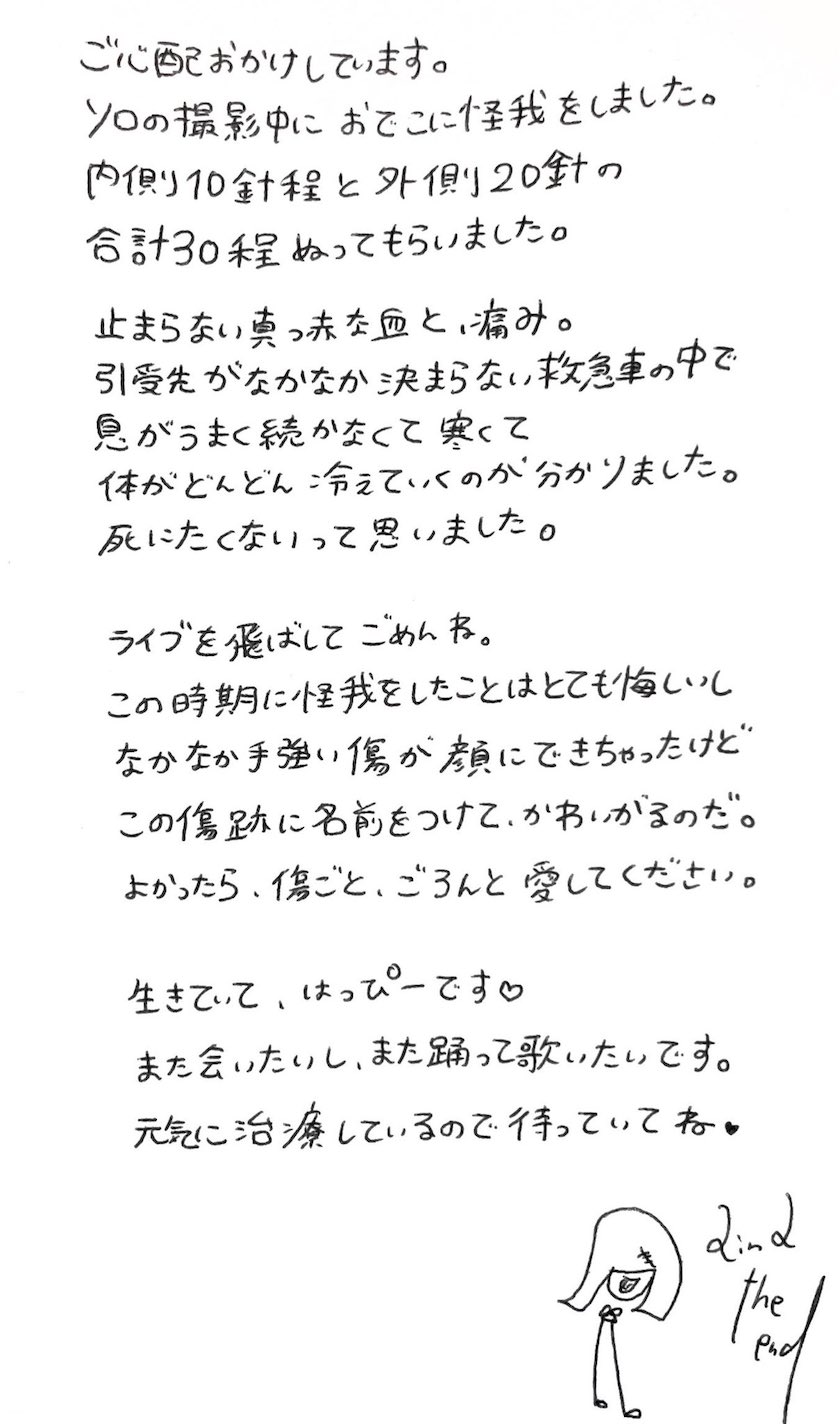 ご心配おかけしています。
ソロの撮影中に おでこに怪我をしました。
内側り10針程と外側り20針の
合計30程ぬってもらいました。
止まらない真っ赤な血と、痛み。
引受先がなかなか決まらない救急車の中で
息がうまく続かなくて寒くて
体がどんどん冷えていくのが分かりました。
死にたくないって思いました。
ライブを飛ばしてごめんね。
この時期に怪我をしたことはとても悔しいし
なかなか手強い傷が顔にできちゃったけど
この傷跡に名前をつけて、かわいがるのだ。
よかったら、傷ごと、ごろんと愛してください。
生きていて、はっぴーです♡
また会いたいし、また踊って歌いたいです。
元気に治療しているので待っていてね♥
the
end